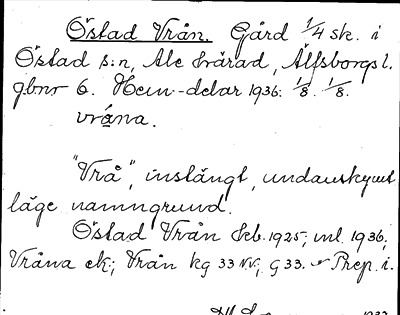 Östad Vrån. Gård 1/4 sk. i
Östad s:n, Ale härad, Älfsborgs l.
gbnr 6. Hem-delar 1936: 1/8. 1/8.
vrǻna.
"Vrå", instängt, undanskymt
läge namngrund.
Östad Vrån Seb. 1925, ml. 1936,
Vråna ek; Vrån kg 33 NV, G 33. Prep. i.